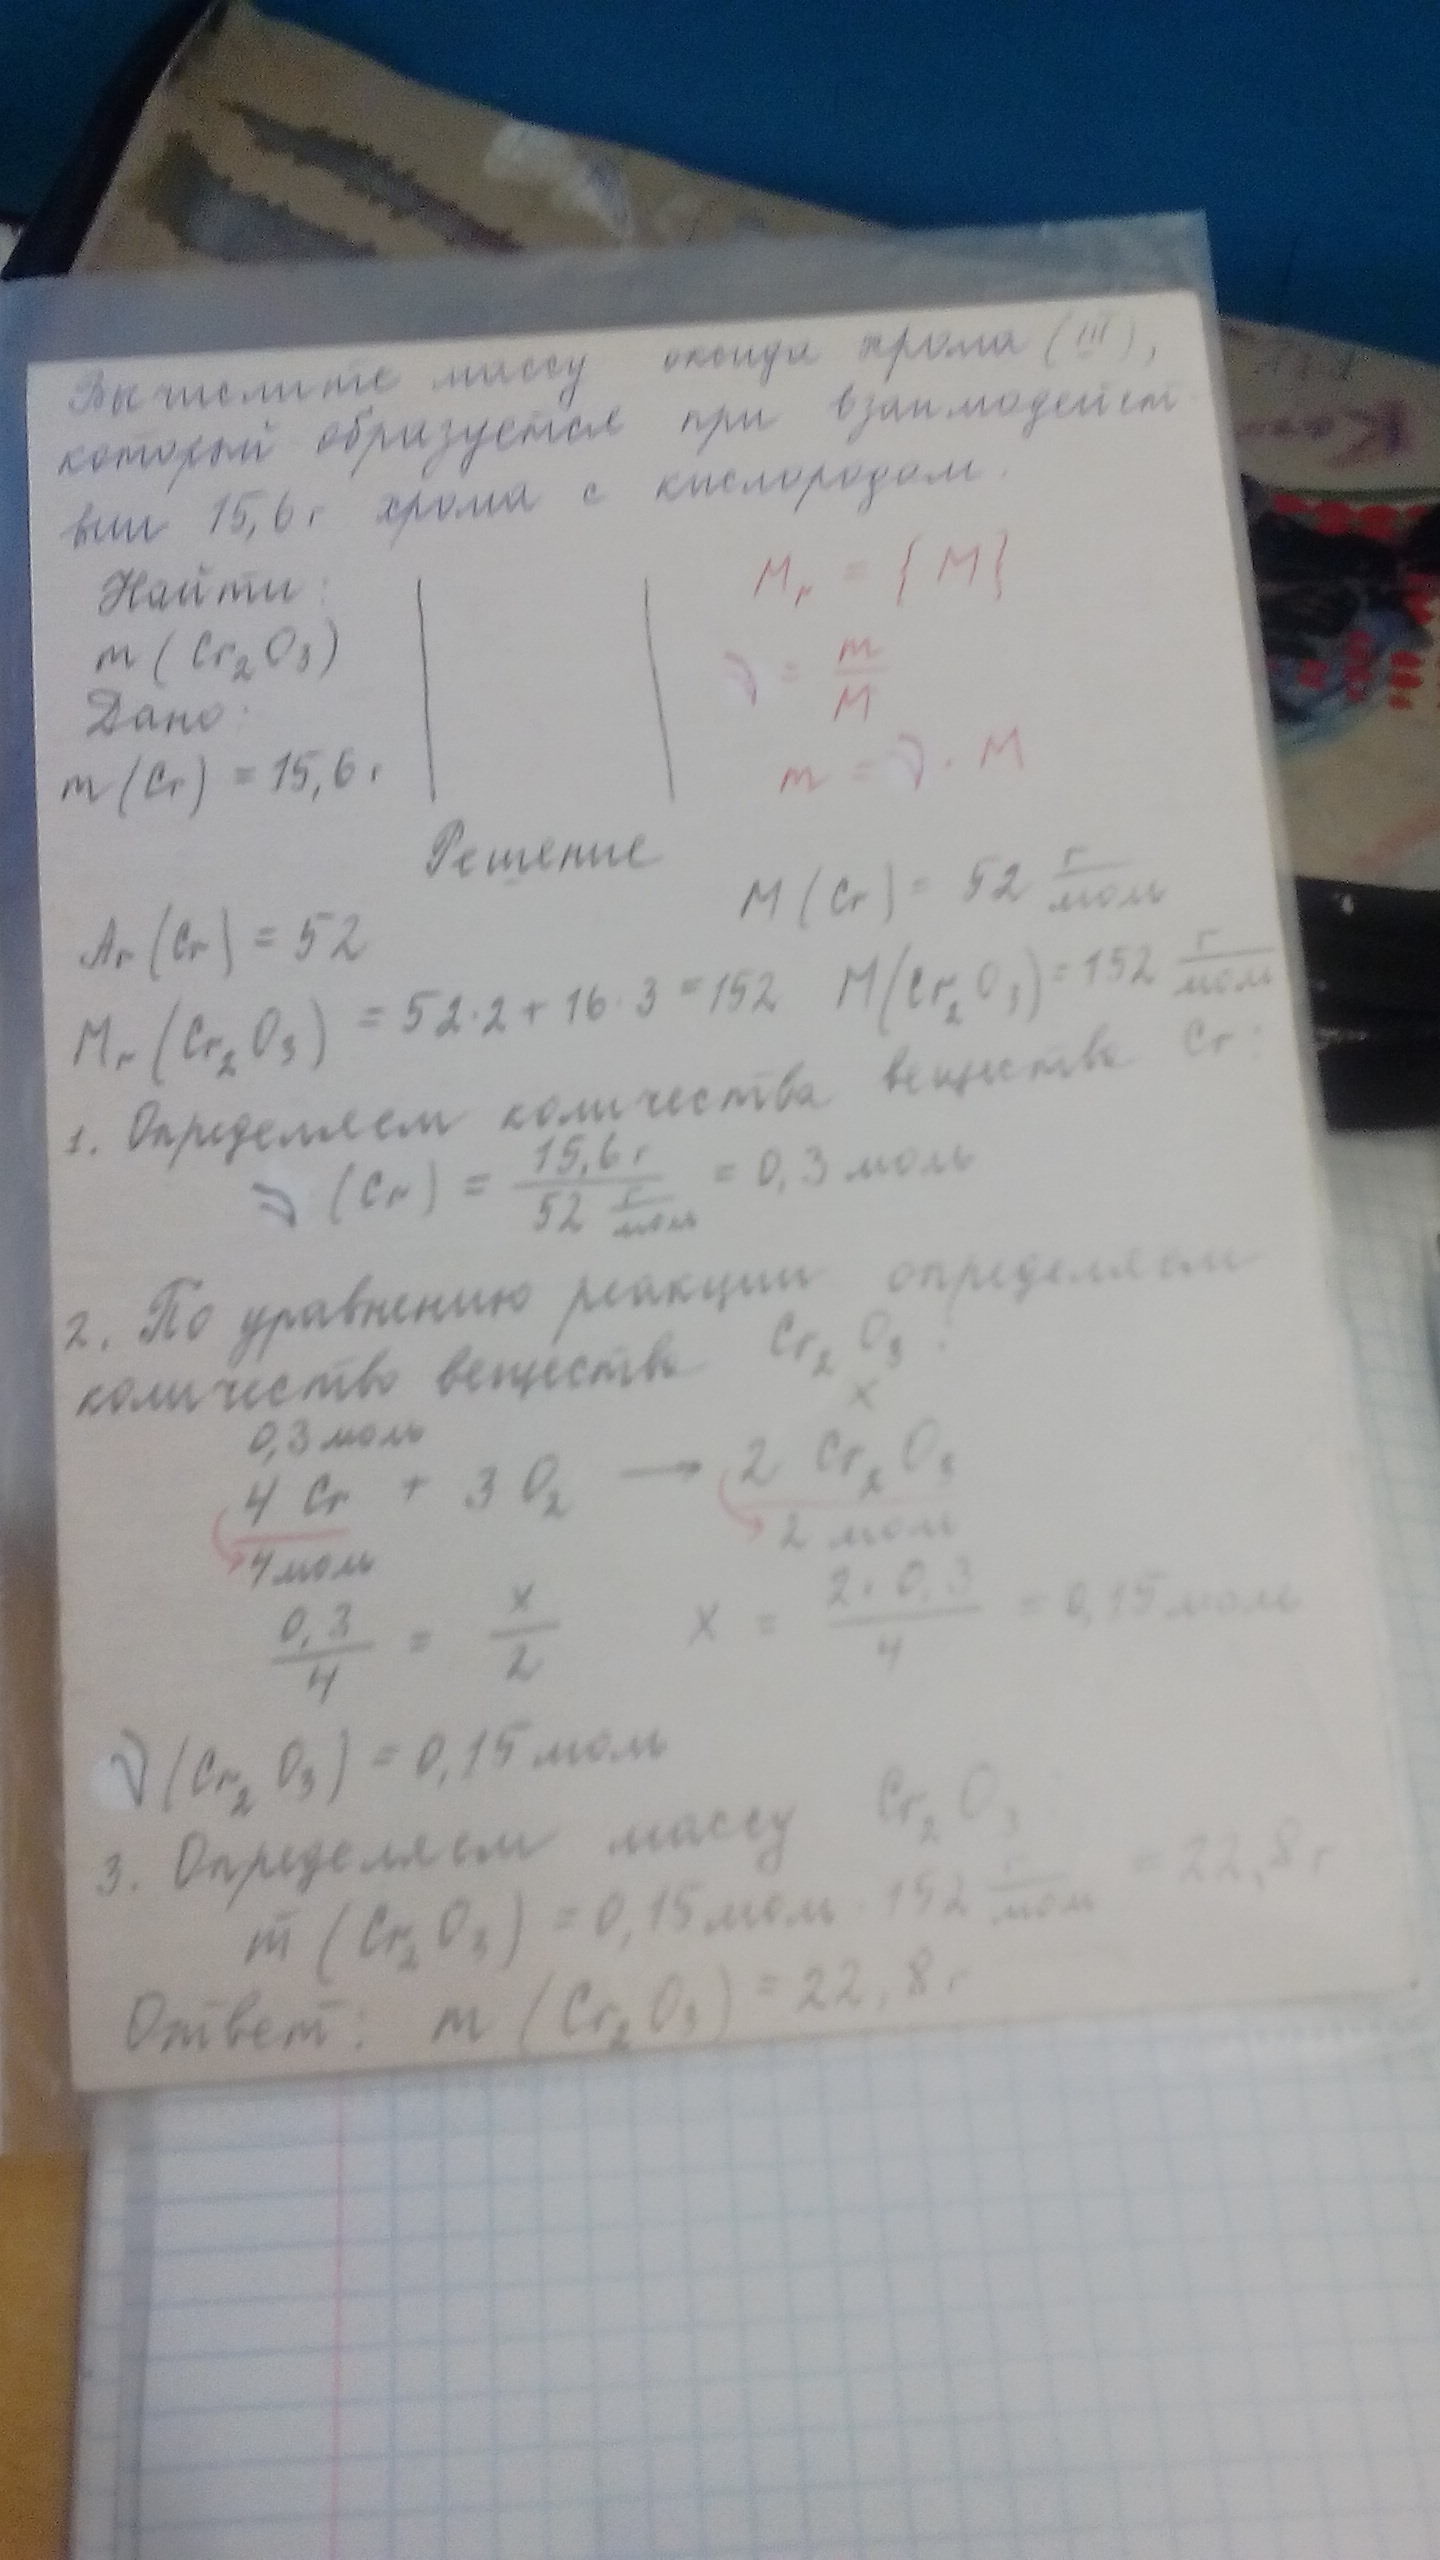 Вычислите массу оксида хрома (III),
который образуется при взаимодейст-
вии 15,6 г хрома с кислородом.
Найти:
m (Cr₂O₃)
Дано:
m (Cr) = 15,6 г
Mᵣ = {M}
ν = m/M
m = ν · M
Решение
Aᵣ (Cr) = 52
M (Cr) = 52 г/моль
Mᵣ (Cr₂O₃) = 52·2 + 16·3 = 152 M(Cr₂O₃) = 152 г/моль
1. Определяем количества вещества Cr:
ν (Cr) = 15,6 г / 52 г/моль = 0,3 моль
2. По уравнению реакции определяем
количество вещества Cr₂O₃:
0,3 моль x
4 Cr + 3 O₂ → 2 Cr₂O₃
4 моль 2 моль
0,3/4 = x/2 x = 2·0,3/4 = 0,15 моль
ν (Cr₂O₃) = 0,15 моль
3. Определяем массу Cr₂O₃:
m (Cr₂O₃) = 0,15 моль · 152 г/моль = 22,8 г
Ответ: m (Cr₂O₃) = 22,8 г